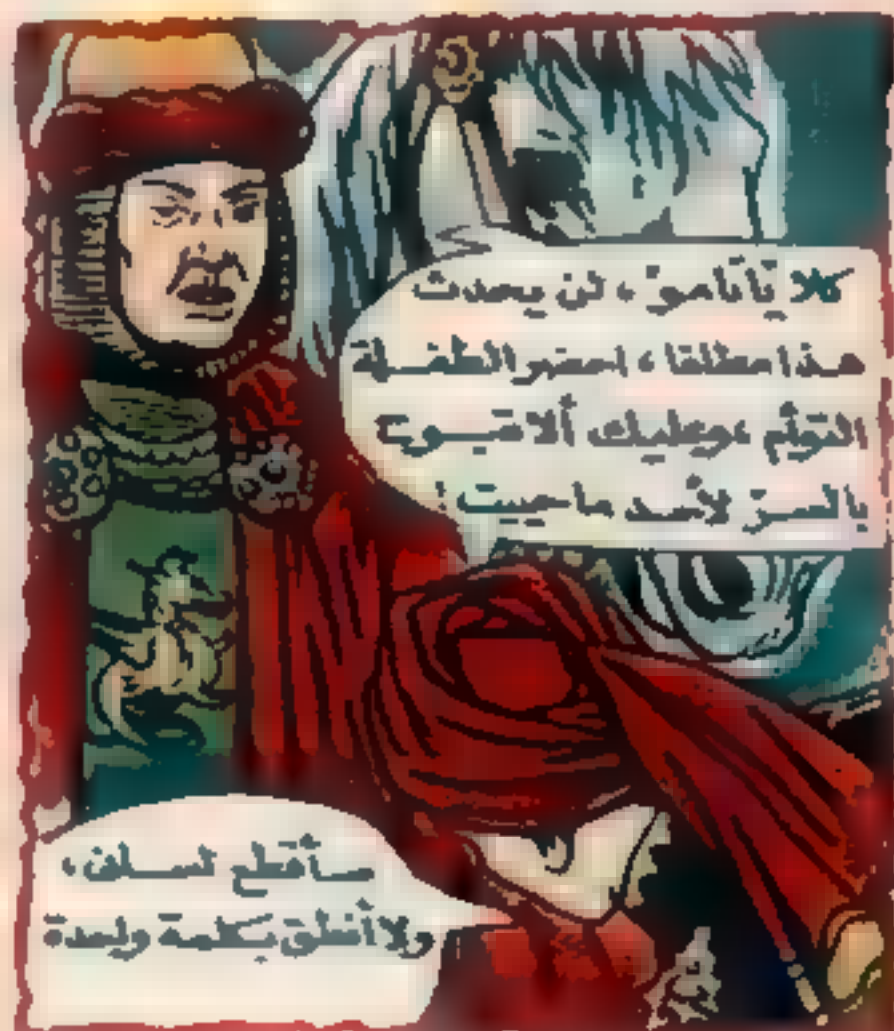 كلا يا تامو، لن يحدث
هذا مطلقا، احضر الطفلة
التوأم، وعليك ألا تبوح
بالسرّ لأحد ما حييت!
سأقطع لساني،
ولا أنطق بكلمة واحدة